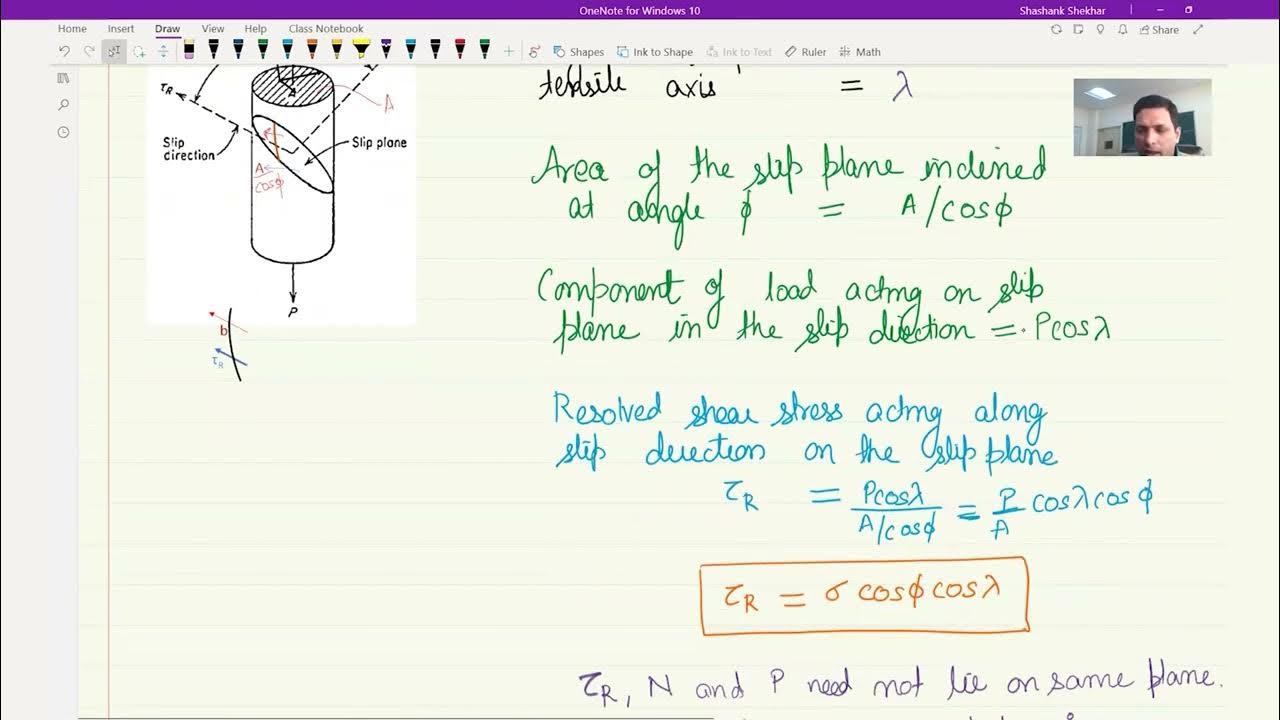 OneNote for Windows 10
Shashank Shekhar
Home Insert Draw View Help Class Notebook
Share
Shapes Ink to Shape Ink to Text Ruler Math
tensile axis = λ
τR
A
Slip
direction
Slip plane
A
cosϕ
P
b
τR
Area of the slip plane inclined
at angle ϕ = A/cosϕ
Component of load acting on slip
plane in the slip direction = Pcosλ
Resolved shear stress acting along
slip direction on the slip plane
τR = Pcosλ / A/cosϕ = P/A cosλcosϕ
τR = σ cosϕcosλ
τR, N and P need not lie on same plane.